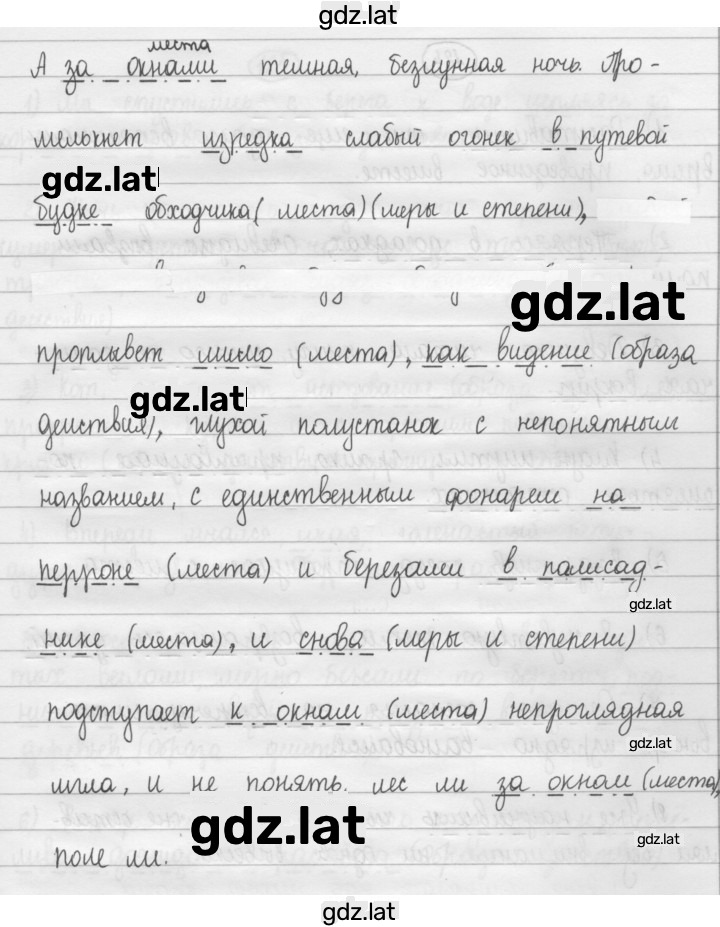 gdz.lat
места
А за окнами темная, безлунная ночь. Про-
мелькнет изредка слабый огонек в путевой
gdz.lat
будке обходчика (места) (меры и степени),
gdz.lat
проплывет мимо (места), как видение (образа
gdz.lat
действия), глухой полустанок с непонятным
названием, с единственным фонарем на
перроне (места) и березами в палисад-
gdz.lat
нике (места), и снова (меры и степени)
подступает к окнам (места) непроглядная
gdz.lat
мгла, и не понять. лес ли за окном (места),
gdz.lat
gdz.lat
поле ли.
gdz.lat